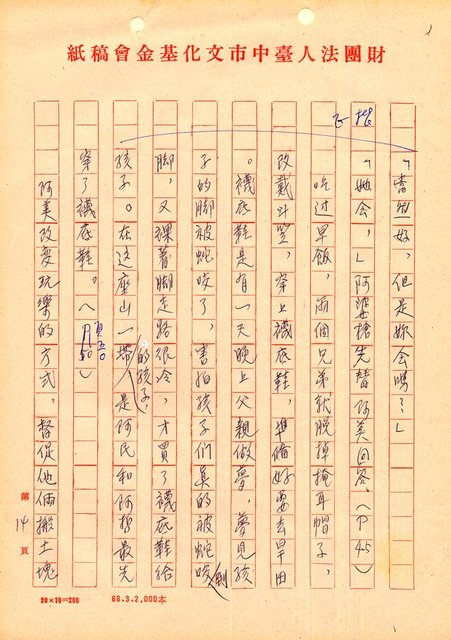 財團法人臺中市文化基金會稿紙
正楷
「當然好，但是妳会嗎？」
「她会，」阿婆搶先替阿美回答。（P45）
吃过早飯，兩個兄弟就脱掉掩耳帽子，
改戴斗笠，穿上襪底鞋，準備好要去旱田
。襪底鞋是有一天晚上父親做夢，夢見孩
子的脚被蛇咬了，害怕孩子們真的被蛇咬到
脚，又裸着脚走路很冷，才買了襪底鞋給
孩子。在这座山一帶的孩子，人是阿民和阿哲最先
穿了襪底鞋。（P50）
阿美改变玩樂的方式。督促他倆搬土塊
第14頁
20×10=200
68.3.2,000本